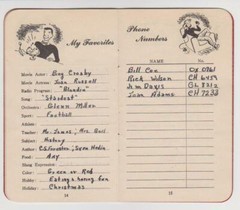 My Favorites
Movie Actor: Bing Crosby
Movie Actress: Jean Russell
Radio Program: "Blondie"
Song: "Stardust"
Orchestra: Glenn Miller
Sport: Football
Athlete:
Teacher: Mr. James, Mrs.
Subject: History
Author:
Food:
Saying:
Color: Green or Red
Hobby: Eating & having fun
Holiday: Christmas
Phone Numbers
NAME No.
Bill Cox OX 0761
Rick Wilson CH 6459
Jim Davis GL 8212
Joan Adams CH 7233